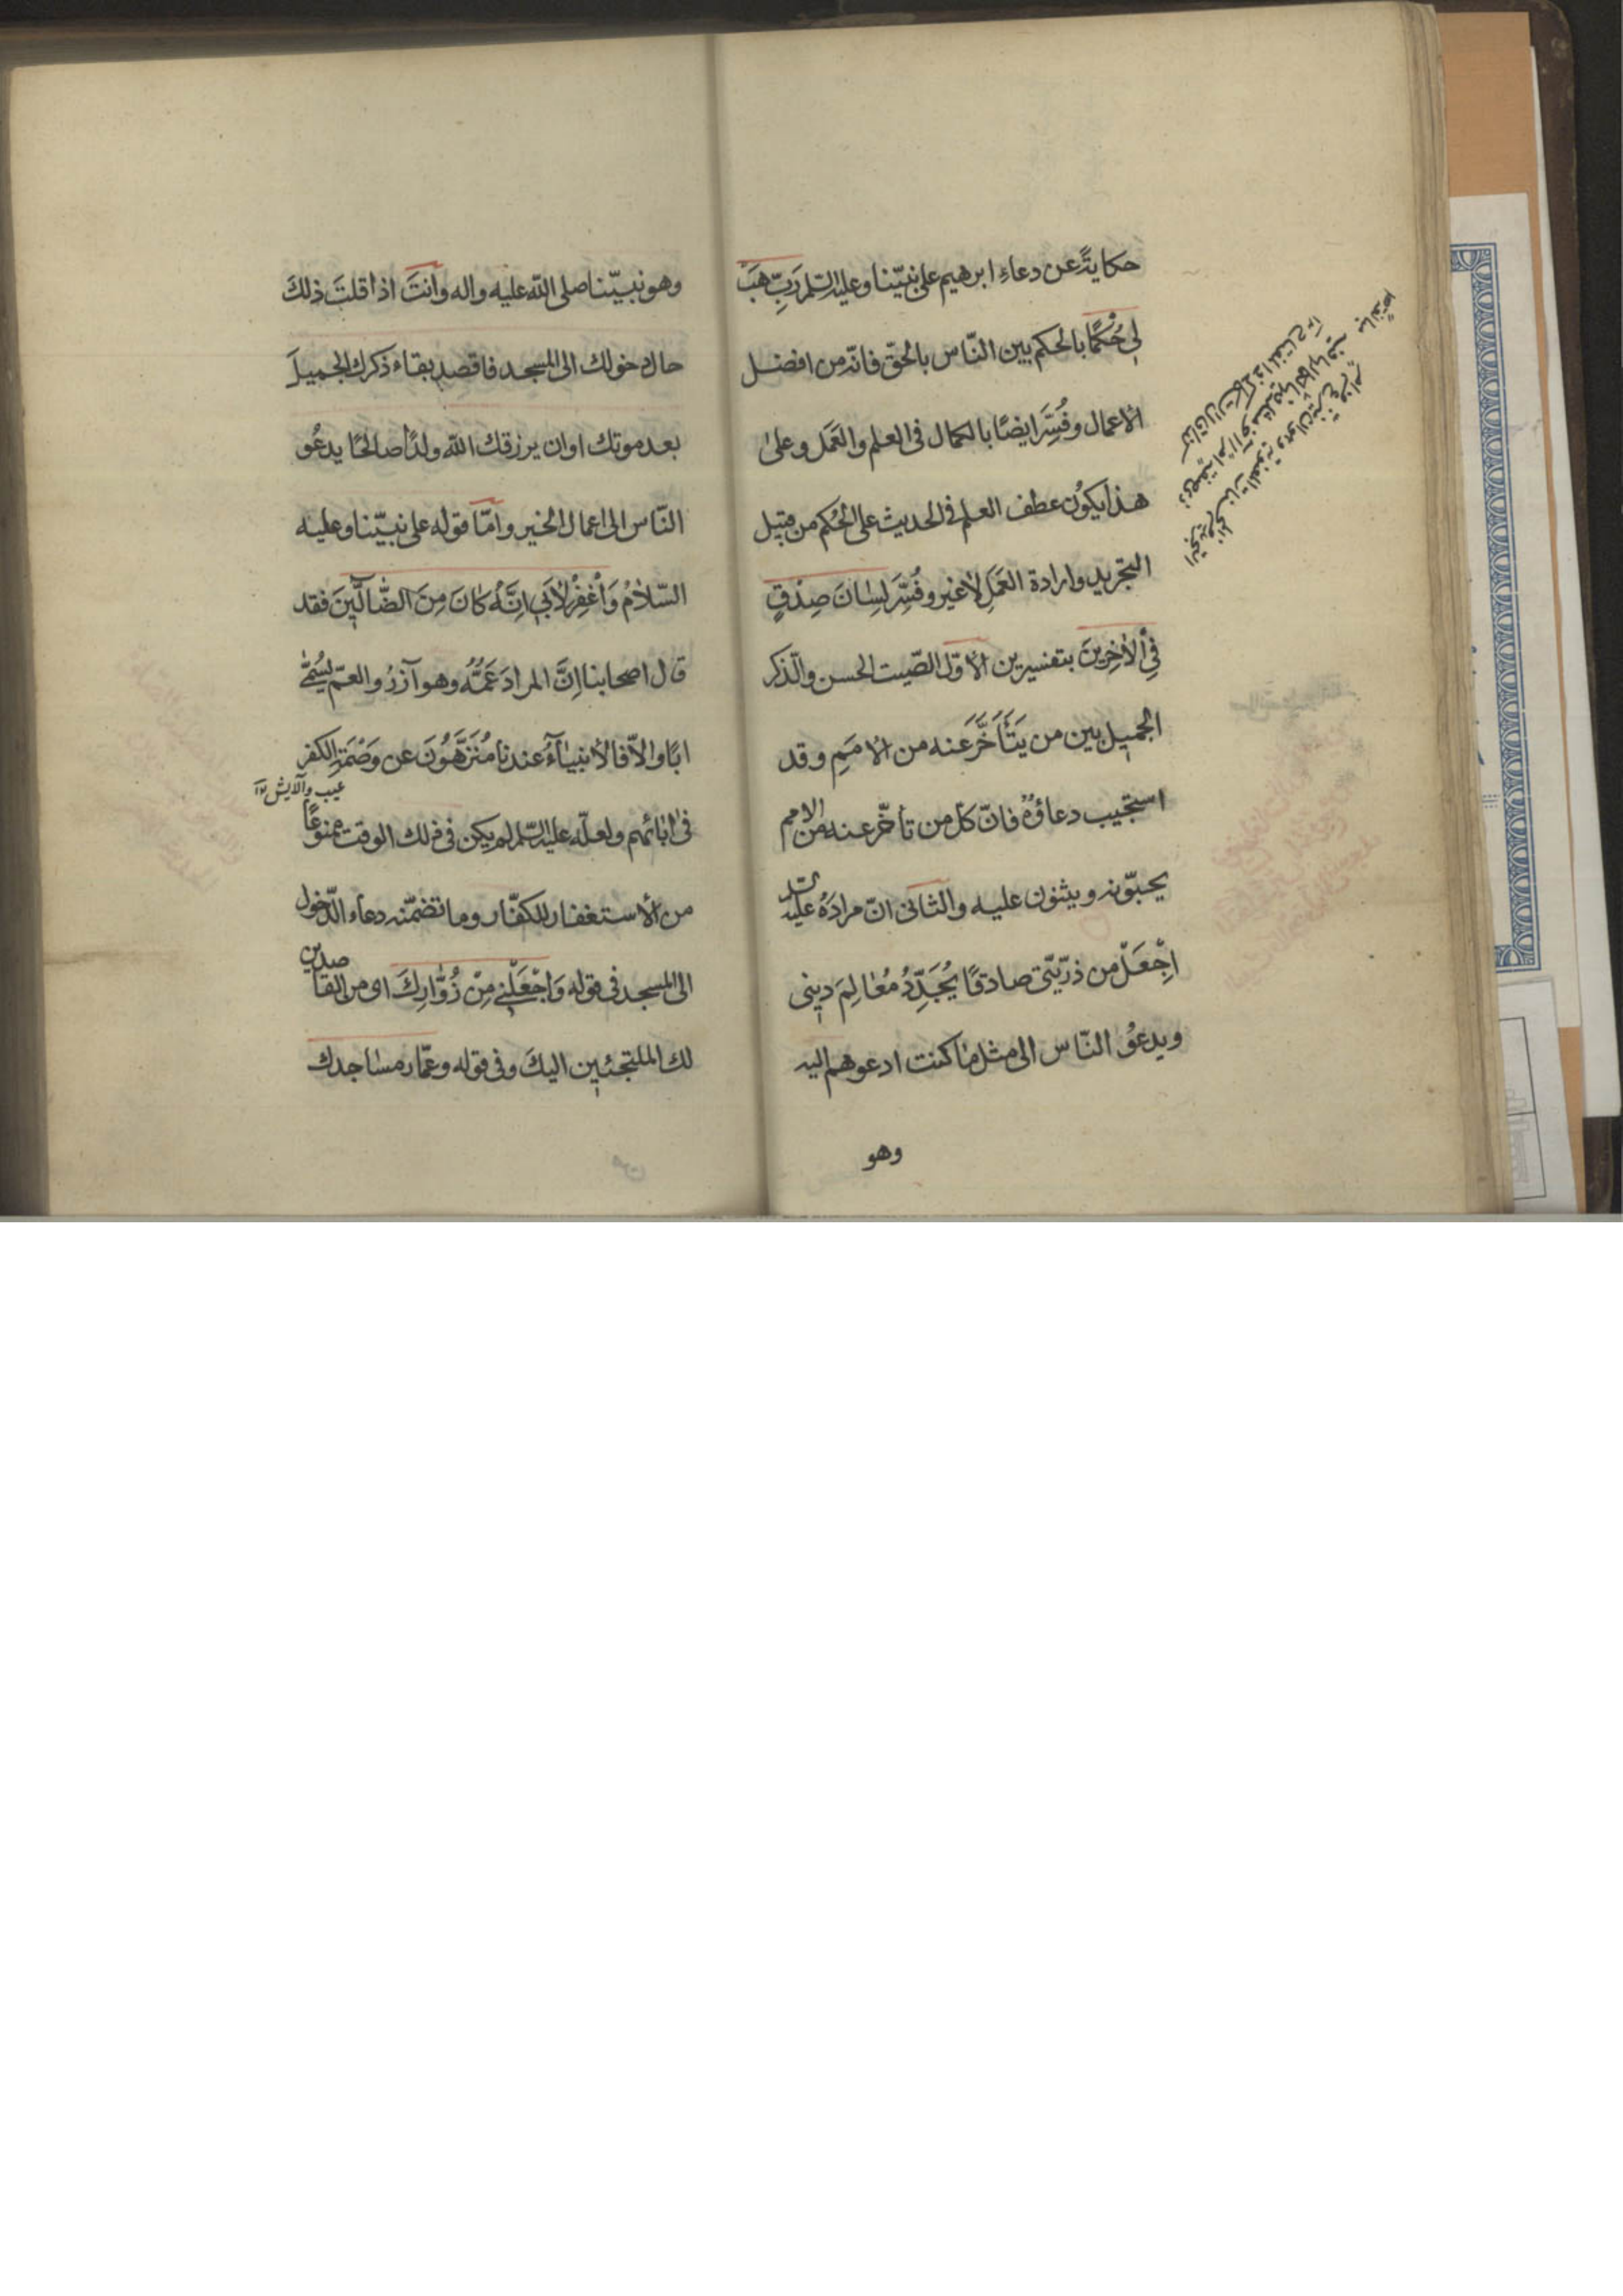 حكايةً عن دعاءِ ابرهيم على نبيّنا وعليه السّلم رَبِّ هَبْ
لِي حُكْمًا بالحكم بين النّاس بالحقّ فانّه من افضل
الاعمال وفُسِّرَ ايضًا بالكمال فى العلم والعَمَل وعلى
هذا يكوُن عطف العلم فى الحديث على الحُكم من قبيل
التجريد وارادة العَمَلِ لا غير وفُسِّرَ لِسٰانَ صِدْقٍ
فِي الْاٰخِرِينَ بتفسيرين الاوّل الصّيت الحسن والذّكر
الجميل بين من يَتَأَخَّرَ عنه من الامَمِ وقد
استجيب دعاؤهُ فانّ كلّ من تأخّر عنه من الامم
يحبّونه ويثنون عليه والثّانى انّ مرادَهُ عليه السّلم
اِجْعَلْ من ذرّيّتى صادقًا يُجَدِّدُ مَعٰالِمَ دينى
ويدعوُ النّاس الى مثل مٰا كنت ادعوهم اليه
وهو
وهو نبيّنا صلى اللّٰه عليه واله وانتَ اذا قلتَ ذلكَ
حال دخولك الى المسجد فاقصد بقاء ذكرك الجميلَ
بعد موتك او ان يرزقك اللّٰه ولدًا صالحًا يدعُو
النّاس الى اعمال الخير وامّا قوله على نبيّنا وعليه
السّلامُ وَاغْفِرْ لِأَبي اِنَّهُ كٰانَ مِنَ الضّٰالّينَ فقد
قال اصحابنا اِنَّ المرادَ عَمُّهُ وهو آزرُ والعمّ يُسَمّٰى
ابًا والاّ فالأنبيٰآءُ عندنا مُنَزَّهُونَ عن وَصْمَةِ الكفر
عيب وآلايش
فى اٰبائهم ولعلّه عليه السّلم لم يكن فى ذلك الوقت ممنوعًا
من الاستغفار للكفّار وما تضمّنه دعاء الدّخول
الى المسجد فى قوله وَاجْعَلْنى مِنْ زُوّٰارِكَ اى من القاصدين
لك الملتجئين اليكَ وفى قوله وعمّار مساجدك